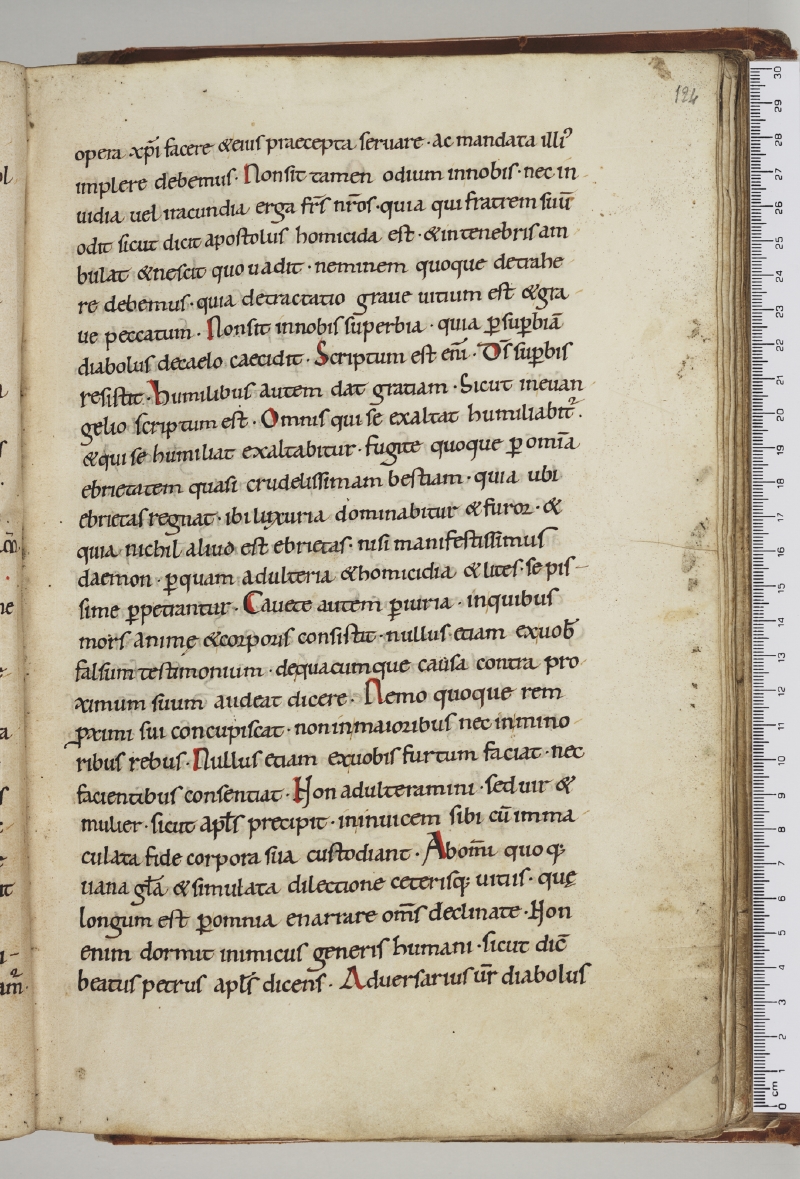 124
opera xp̄i facere &eius praecepta seruare · ac mandata illi᾽
implere debemus · Nonsit tamen odium innobis · nec in
uidia uel iracundia erga fr̄s nr̄os · quia qui fratrem suū
odit sicut dicit apostolus homicida est · &intenebris am
bulat &nescit quo uadit · neminem quoque detrahe
re debemus · quia detractatio graue uitium est &gra
ue peccatum · Nonsit innobis superbia · quia ꝑsuꝑbiā
diabolus decaelo caecidit · Scriptum est eni̅ · Ds̄ suꝑbis
resistit · humilibus autem dat gratiam · Sicut ineuan
gelio scriptum est · Omnis qui se exaltat humiliabit᷑ .
&qui se humiliat exaltabitur · fugite quoque ꝑ omīa
ebrietatem quasi crudelissimam bestiam · quia ubi
ebrietas regnat · ibi luxuria dominabitur & furor · &
quia nichil aliud est ebrietas · nisi manifestissimus
daemon · ꝑquam adulteria &homicidia & lites · sepis-
sime ꝑpetrantur · Cauete autem ꝑiuria · inquibus
mors animę &corporis consistit · nullus etiam exuob̄
falsum testimonium · dequacumque causa contra pro
ximum suum audeat dicere · Nemo quoque rem
ꝓximi sui concupiscat · noninmaioribus nec inmino
ribus rebus · Nullus etiam exuobis furtum faciat · nec
facientibus consentiat · Non adulteramini · sed uir &
mulier · sicut apl̄s precipit · ininuicem sibi cū imma
culata fide corpora sua custodiant · Ab omi̅ quoq;
uana gl̄a & simulata dilectione ceterisq; uitiis · quę
longum est ꝑomnia enarrare om̄s declinate · Non
enim dormit inimicus generis humani · sicut dic̄
beatus petrus apl̄s dicens̄ · Aduersarius ur̄ diabolus